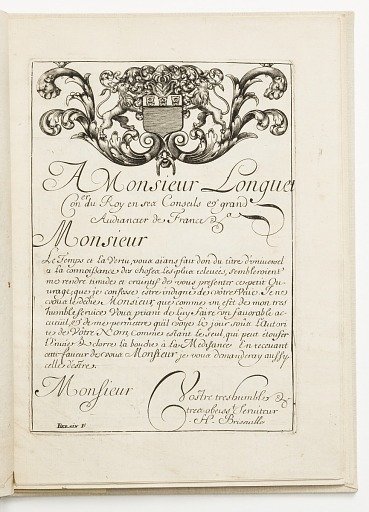 A Monsieur Longuet
Con.er du Roy en ses Conseils et grand
Audiancier de France &.a
Monsieur
Le Temps et la Vertu, vous aians fait don du titre d'universel
a la connoissance des choses les plus releuées, sembleroient
me rendre timides et craintif de vous presenter ce petit Ou-
vrage, que je confesse estre indigne de vostre Veüe. Je ne
vous le dedie Monsieur que comme un effét de mon tres
humble service Vous priant de luy faire un favorable ac-
cueüil et de me permettre qu'il voye le jour sous l'Autori-
te de Vôtre Nom, comme estant le seul qui peut étouffer
l'Envie, & clorre la bouche a la Médisance En recevant
cette faueur de vous Monsieur je vous demanderay aussy
celle d'estre.
Monsieur
Vostre tres humble &
tres obeiss.t Serviteur
H. Brisuille
Berain F.